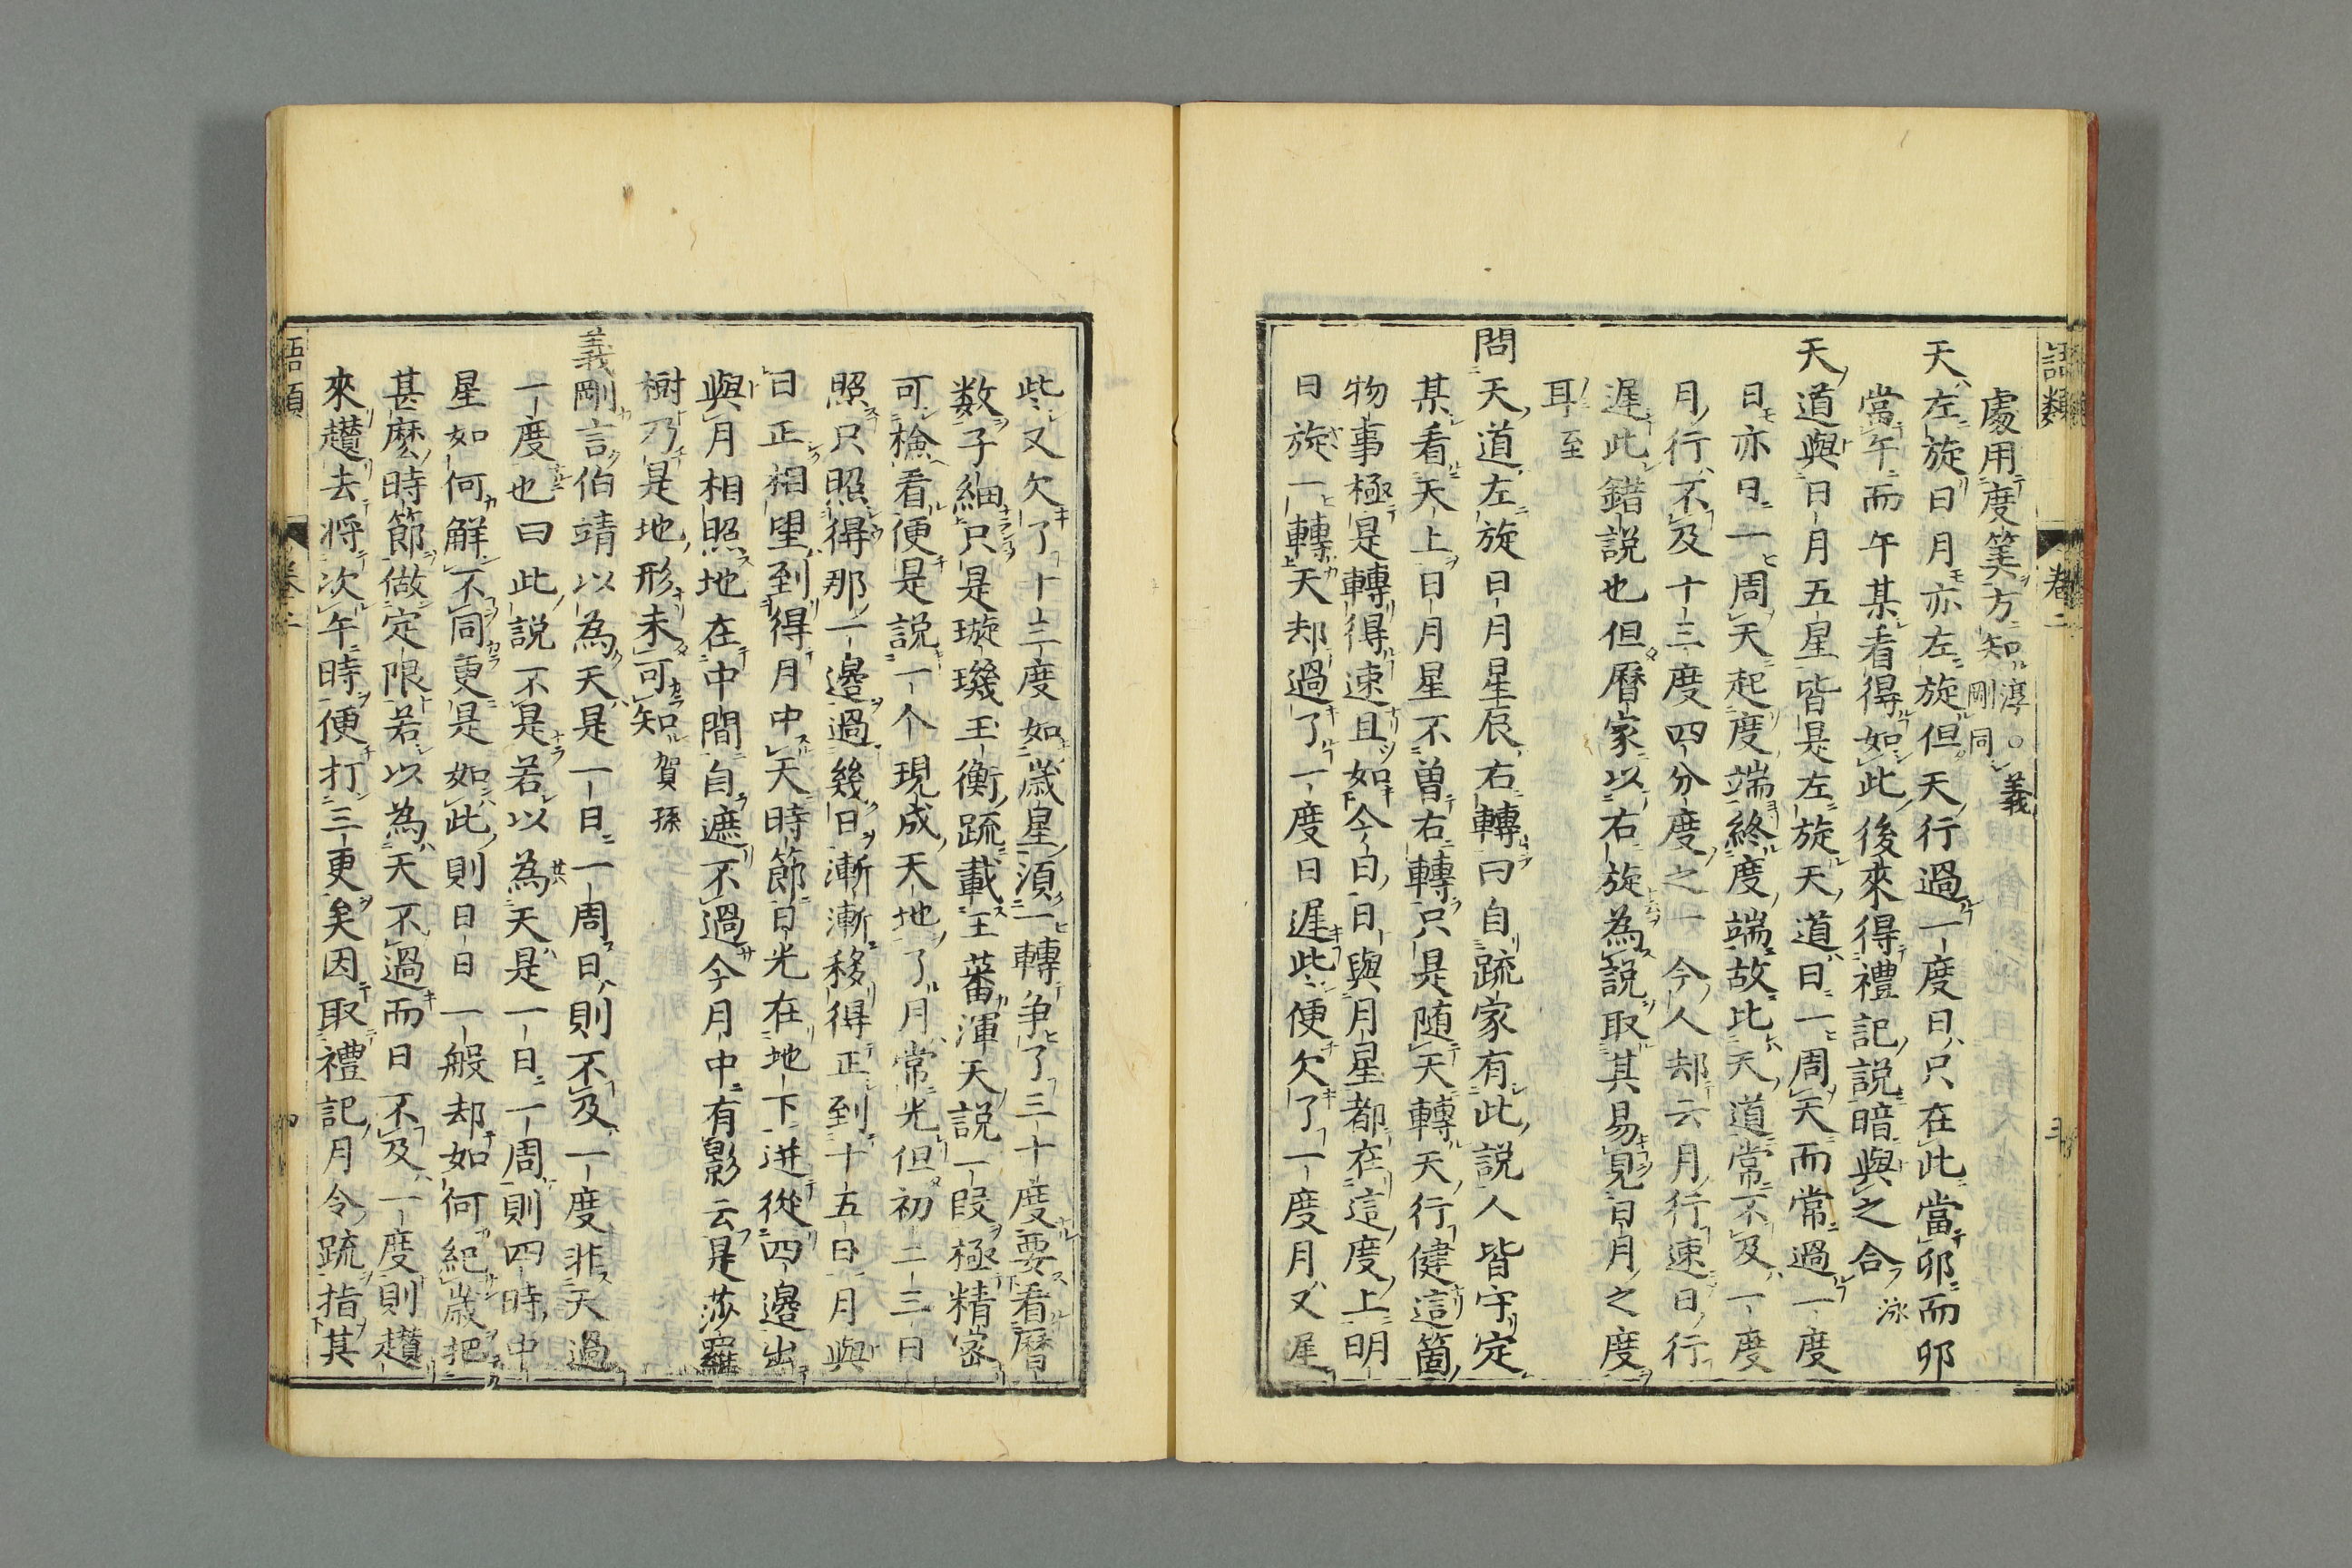 語類
卷二
三
處用度筭方知淳○義剛同
天左旋日月亦左旋但天行過一度日只在此當卯而卯
當午而午某看得如此後來得禮記説暗與之合泳
天道與日月五星皆是左旋天道日一周天而常過一度
日亦日一周天起度端終度端故比天道常不及一度
月行不及十三度四分度之一今人却云月行速日行
遲此錯説也但曆家以右旋為説取其易見日月之度
耳至
問天道左旋日月星辰右轉曰自疏家有此説人皆守定
某看天上日月星不曽右轉只是随天轉天行健這箇
物事極是轉得速且如今日日與月星都在這度上明
日旋一轉天却過了一度日遲些便欠了一度月又遲
些又欠了十三度如歳星湏一轉争了三十度要看曆
数子細只是璇璣玉衡疏載王蕃渾天説一段極精密
可檢看便是説一个現成天地了月常光但初二三日
照只照得那一邊過幾日漸漸移得正到十五日月與
日正相望到得月中天時節日光在地下迸從四邊出
與月相照地在中間自遮不過今月中有影云是莎羅
樹乃是地形未可知賀孫
義剛言伯靖以為天是一日一周日則不及一度非天過
一度也曰此説不是若以為天是一日一周則四時中
星如何解不同更是如此則日日一般却如何紀歳把
甚麽時節做定限若以為天不過而日不及一度則趲
來趲去将次午時便打三更矣因取禮記月令疏指其
語類
卷二
四